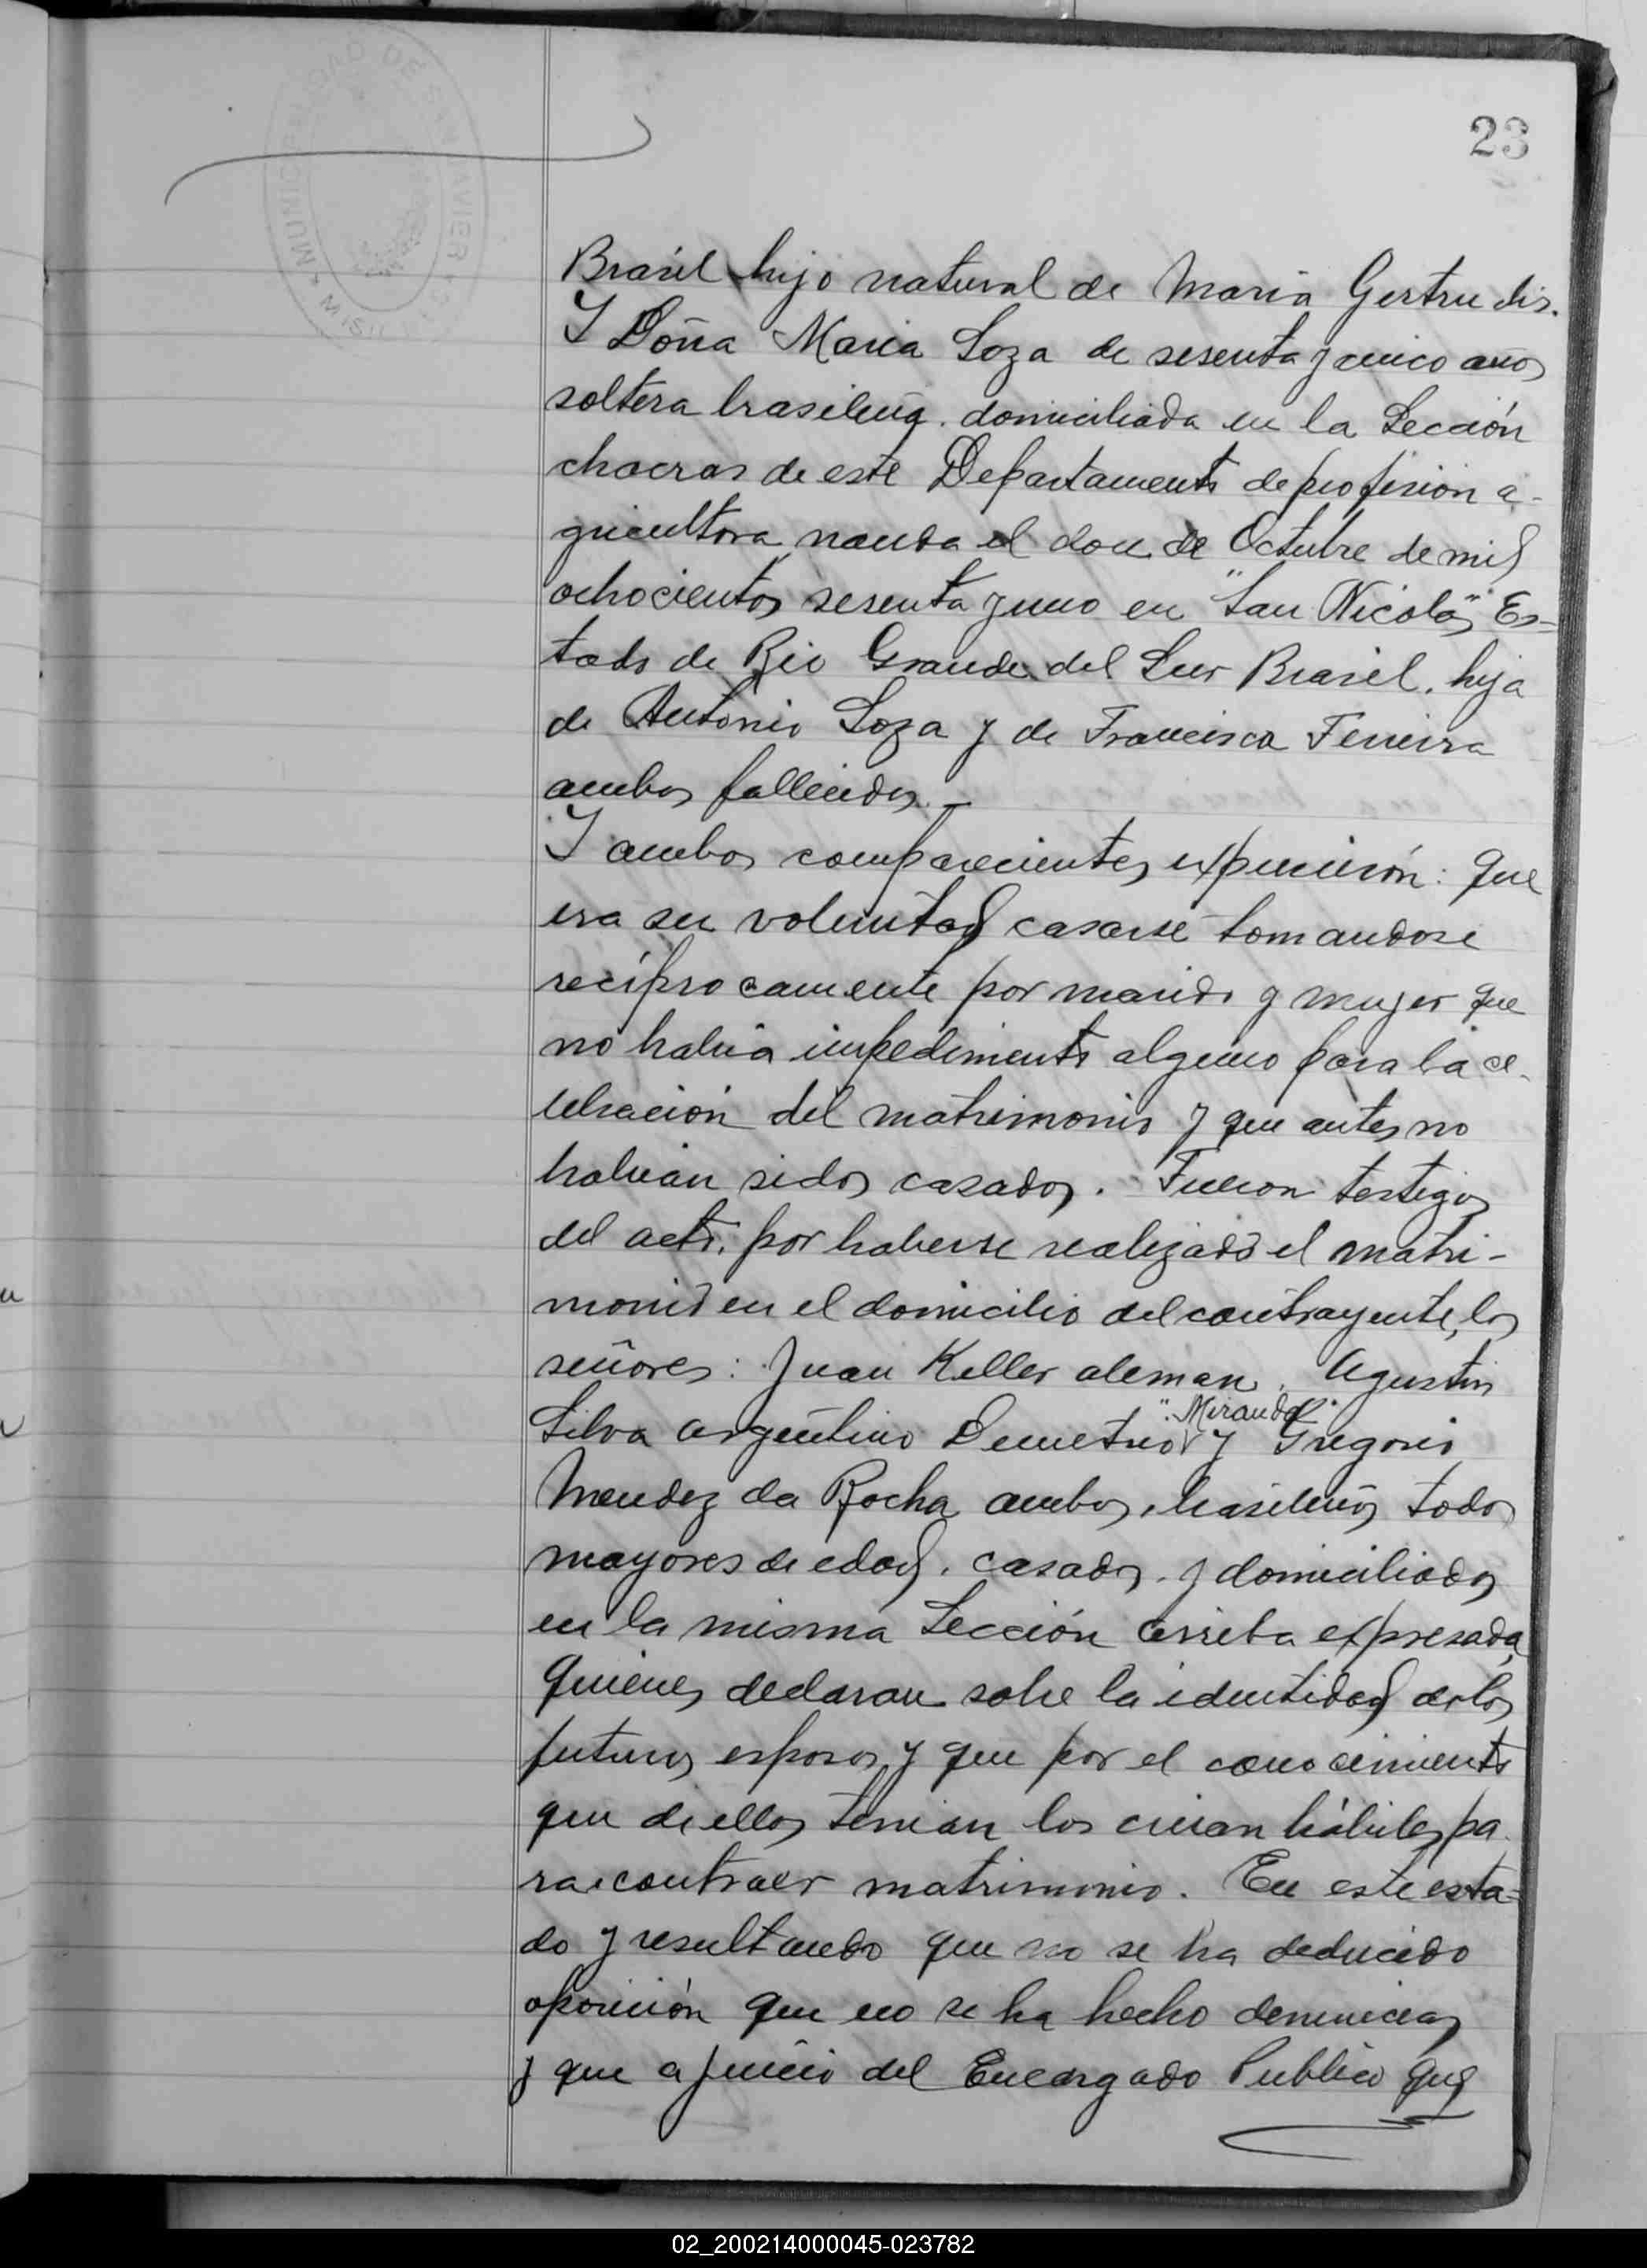 MUNICIPALIDAD DE SAN JAVIER
MISIONES
23
Brasil hijo natural de Maria Gertrudis.
Y Doña Maria Loza de sesenta y cinco años
soltera brasileña. domiciliada en la Sección
chacras de este Departamento de profesion a-
gricultora nacida el doce de Octubre de mil
ochocientos sesenta y uno en "San Nicolás" Es-
tado de Rio Grande del Sur Brasil. hija
de Antonio Loza y de Francisca Ferreira
ambos fallecidos.—
Y ambos comparecientes expusieron: Que
era su voluntad casarse tomandose
recíprocamente por marido y mujer que
no habia impedimento alguno para la ce-
lebración del matrimonio y que antes no
habian sidos casados. Fueron testigos
del acto. por haberse realizado el matri-
monio en el domicilio del contrayente, los
señores: Juan Keller aleman. Agustin
"Miranda"
Silva argentino Demetrio y Gregorio
Mendez da Rocha ambos, brasileños todos
mayores de edad. casados. y domiciliados
en la misma Sección arriba expresada
Quienes declaran sobre la identidad de los
futuros esposos y que por el conocimiento
que de ellos tenian los creian hábiles pa
ra contraer matrimonio. En este esta-
do y resultando que no se ha deducido
oposición que no se ha hecho denuncias
y que a juicio del Encargado Publico que
02_200214000045-023782